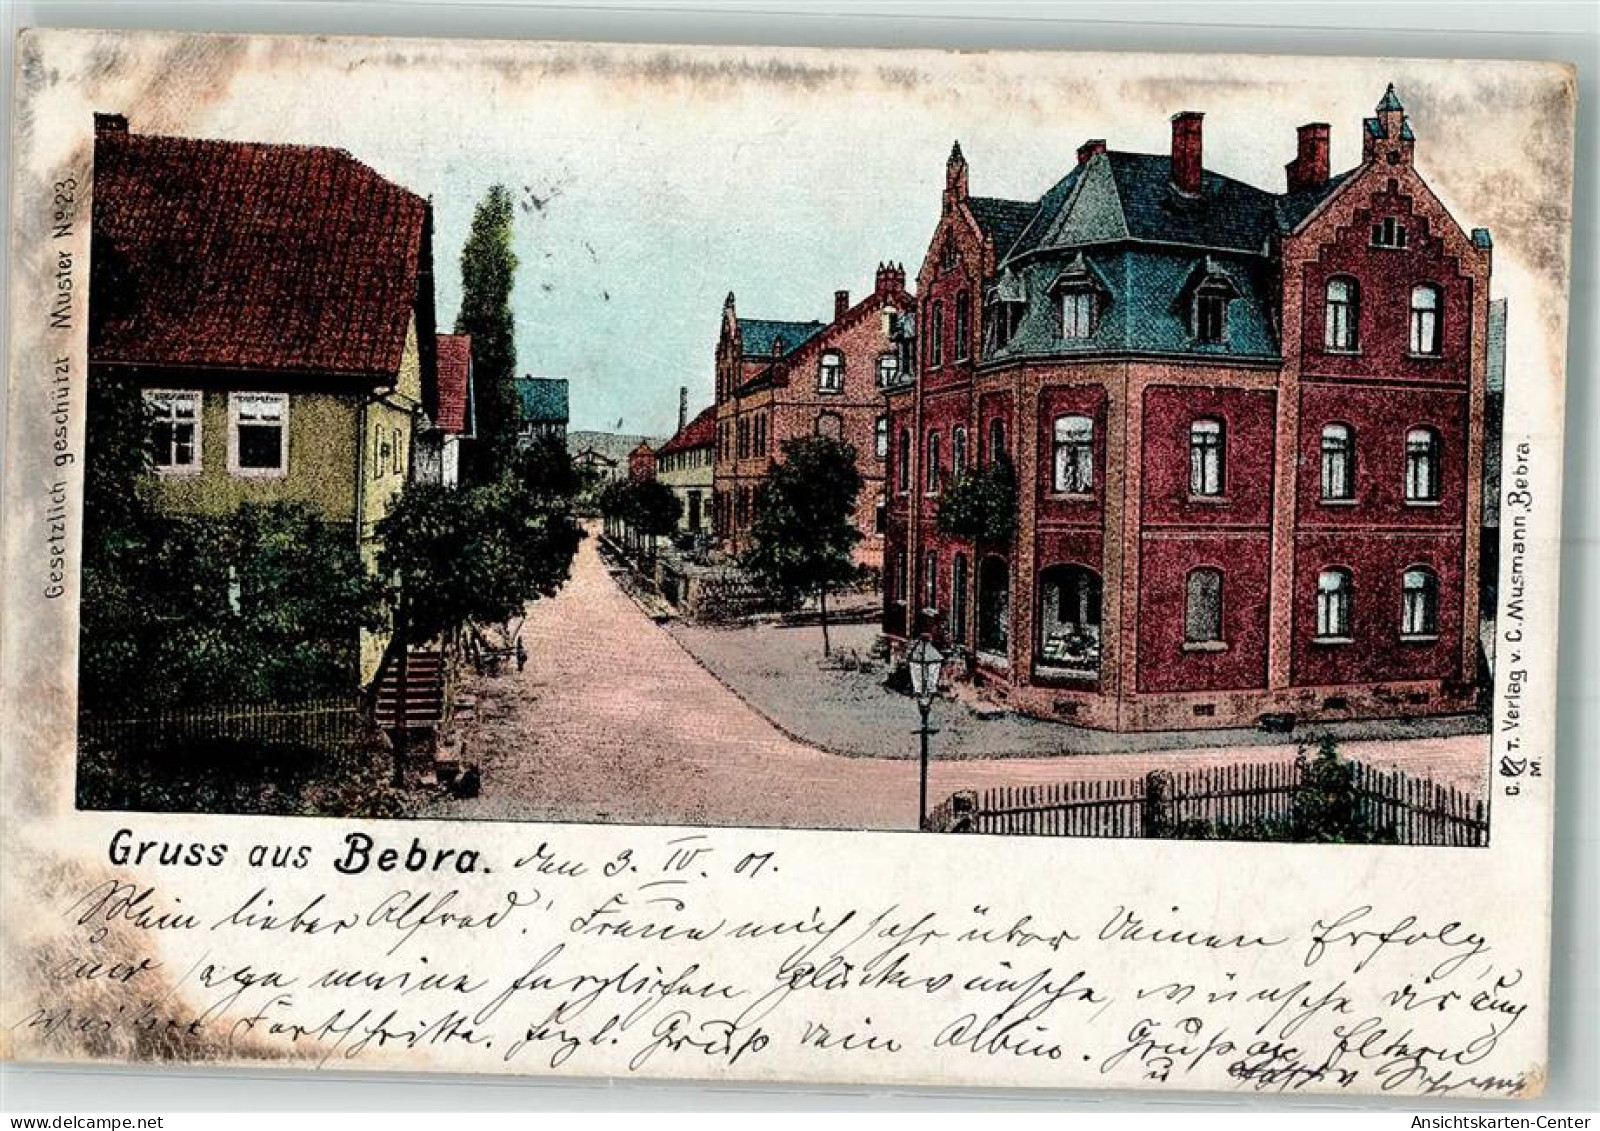 Gesetzlich geschützt Muster No. 23.
C. T. Verlag v. C. Musmann, Bebra.
M.
Gruss aus Bebra. den 3. IV. 01.
Mein lieber Alfred! Freue mich sehr über Deinen Erfolg,
und sage meine herzlichen Glückwünsche, wünsche dir auch
weitere Fortschritte. Herzl. Gruß Dein Albin. Gruß an Eltern
u
Ansichtskarten-Center